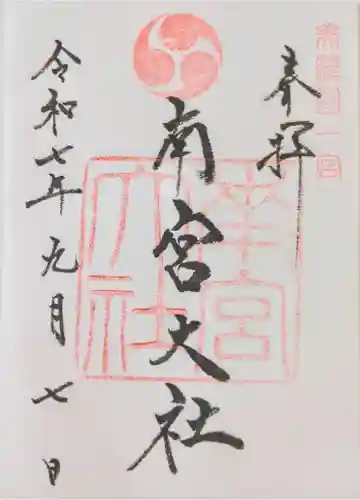 美濃國一宮
奉拝
南宮大社
南宮大社
令和七年九月七日